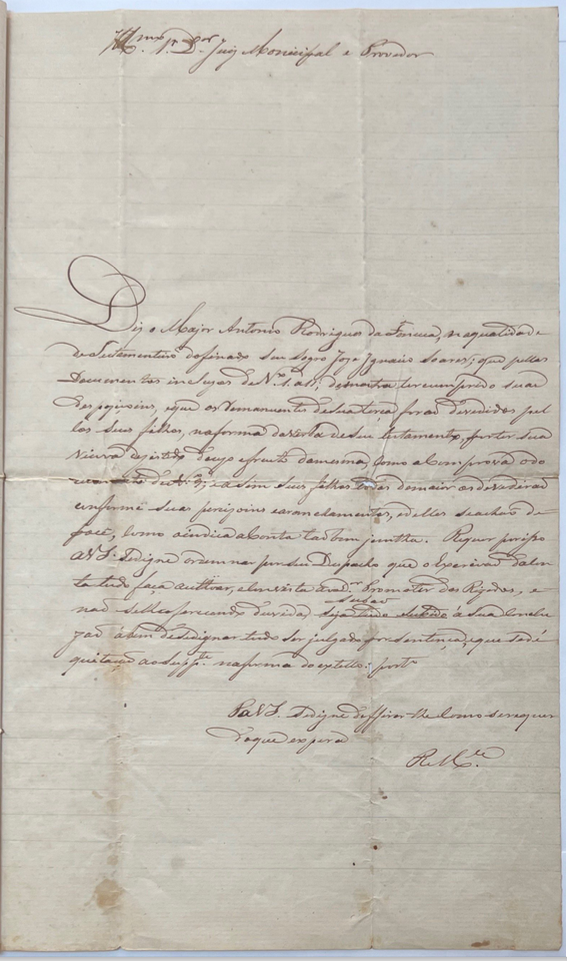 Illmo Sr. Dor Juiz Monicipal e Provedor
Diz o Major Antonio Rodrigues da , na qualidade
de Testamenteiro do finado seu Sogro Jose Ignacio Soares; que pellos
Documentos incluzos de No. 1. a demostra ter cumprido suas
despoziçoins, e que os remanentes de sua terça forão devedidos pel
los seus filhos, na forma da verba de seu testamento, por ter sua
Viuva dezistido do uzo e fruto da mesma, como a Comprova o do
de No ; e assim seus filhos todos de maior as devederão
conforme suas e delles se achão de
posse, como a indica a Conta tão bem juntta. Requer por isso
a V.S. se digne ordennar por seu Despacho que o Escrivão da
tudo faça auttoar, e Promotor dos Rezidos, e
não selhe oferecendo duvida, seja tudo á Sua Conclu
zão á bem de se dignar tudo ser julgado por sentença, que se dé
quitação ao Suppe. na forma do estillo; porto
P. a V.S. se digne deffirir-lhe como se requer
do que espera
R. M.ce